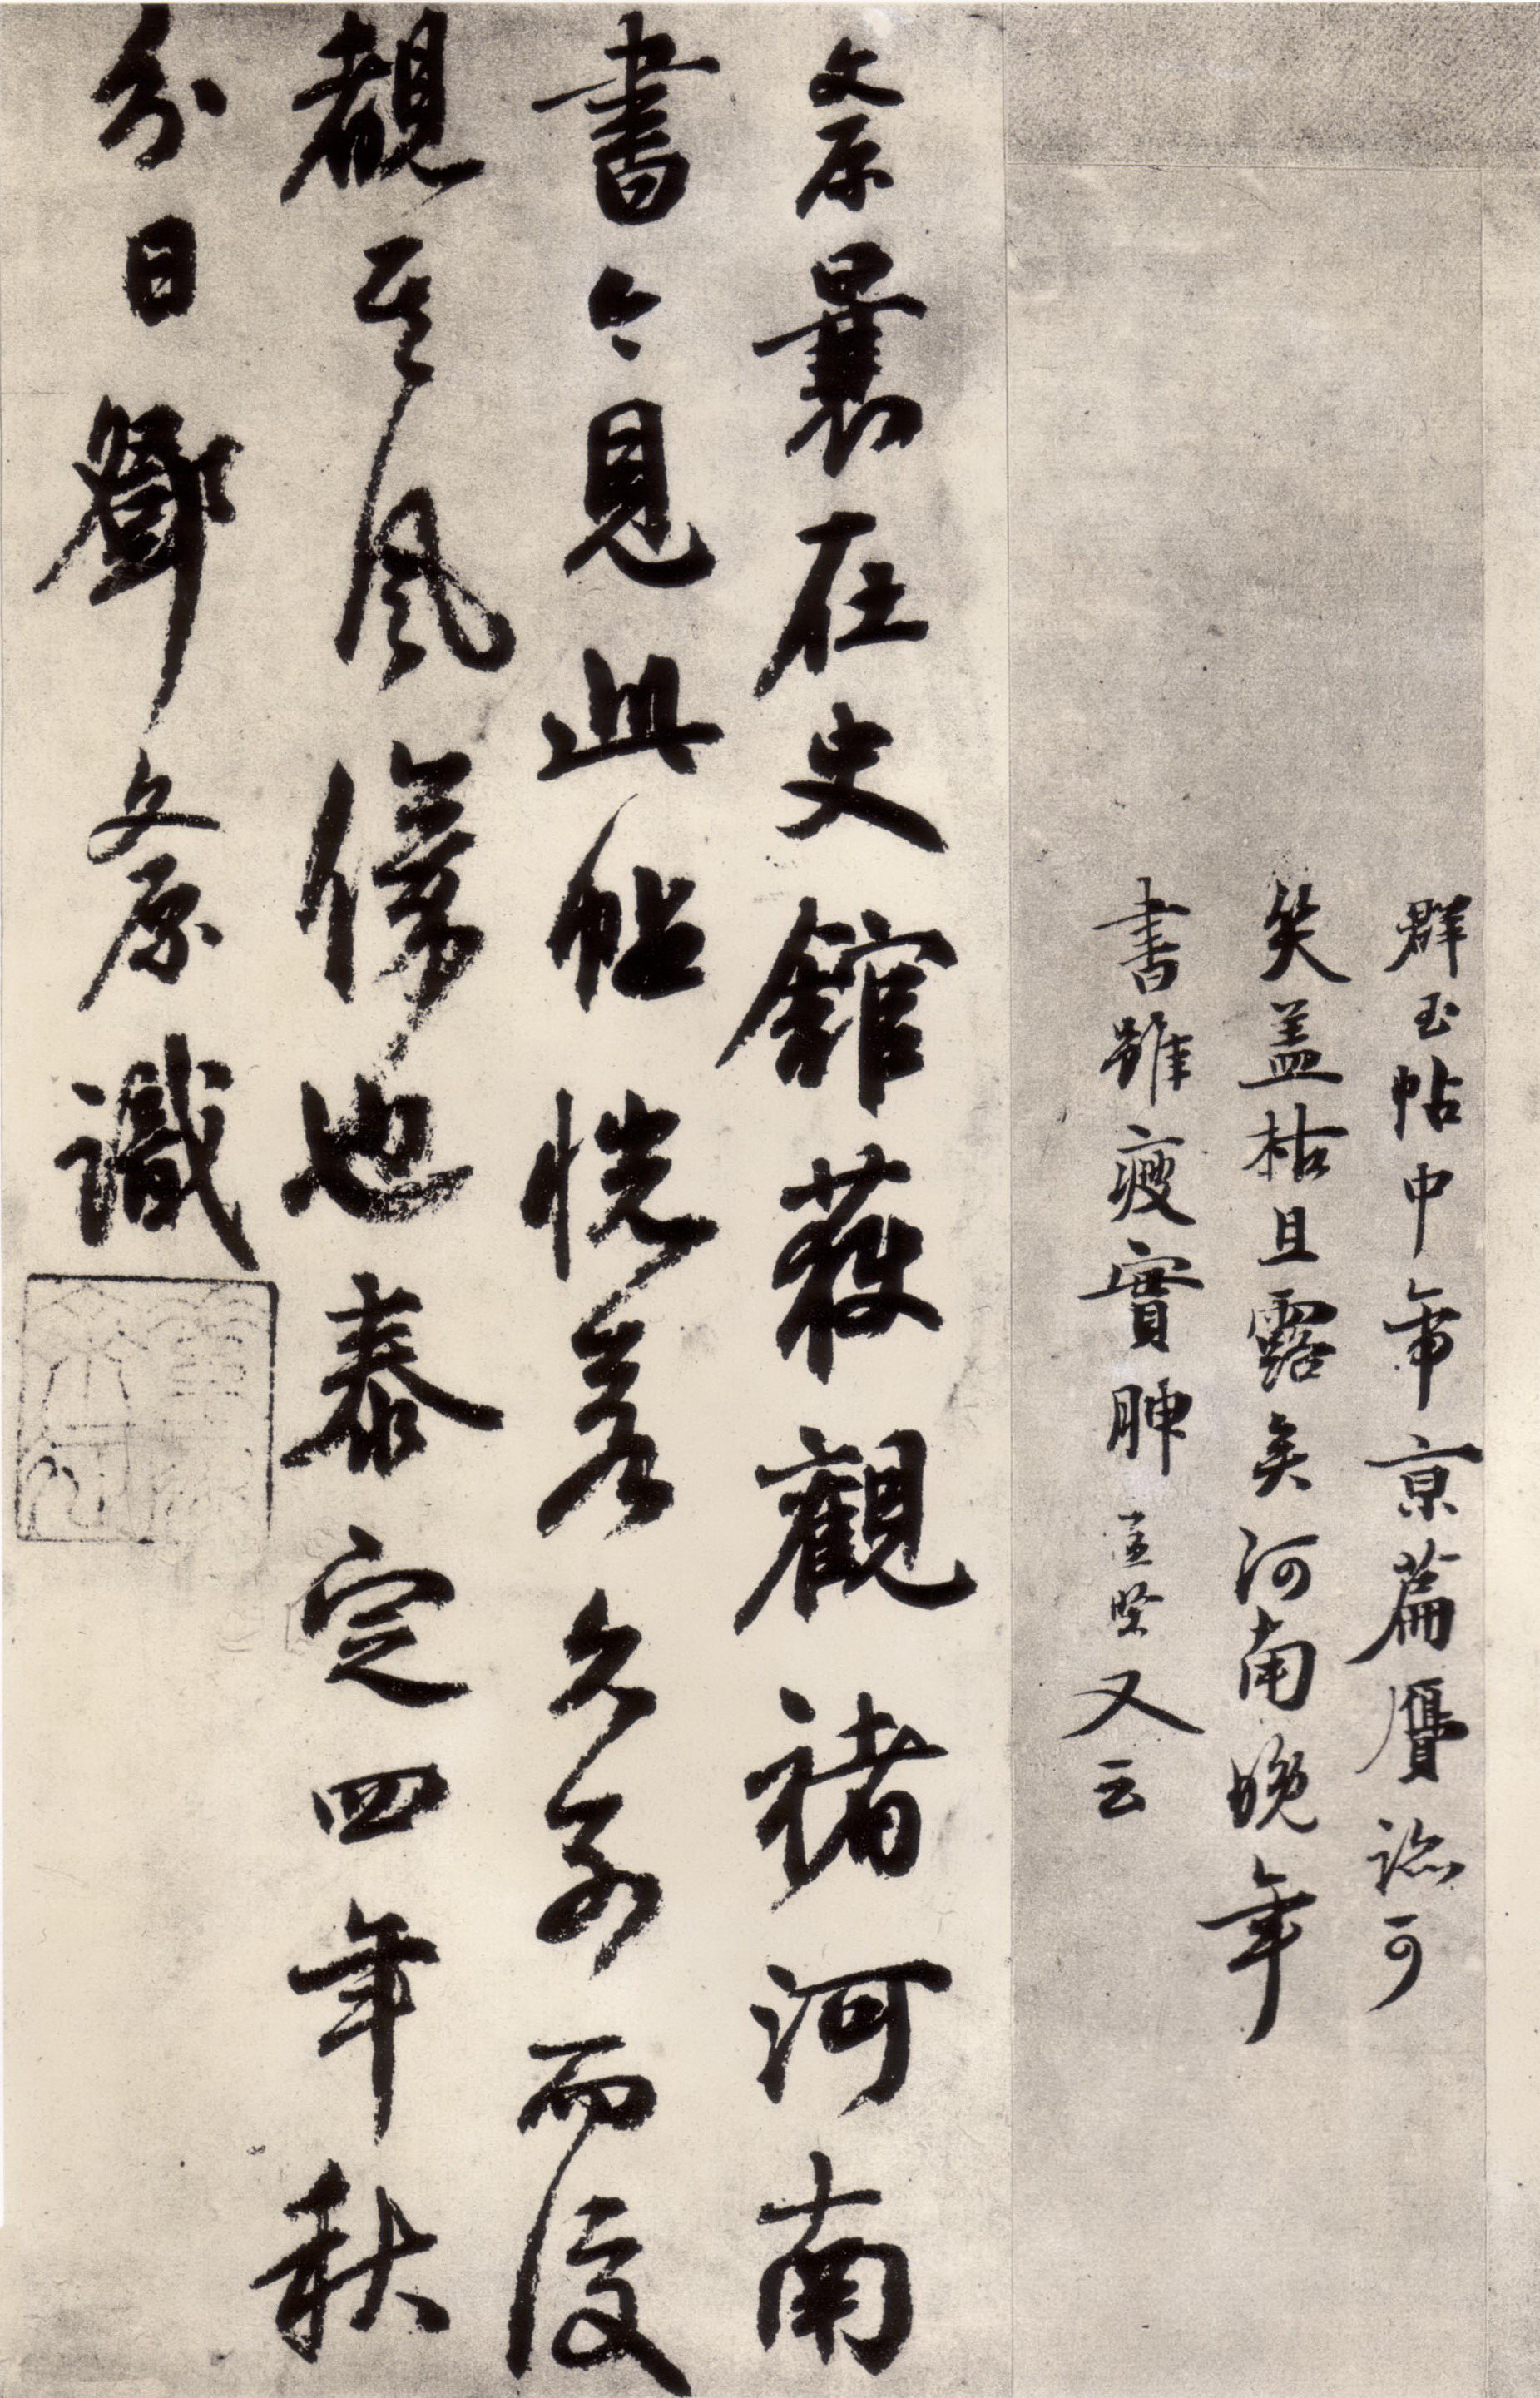 群玉帖中帝京篇贗跡可
笑盖枯且露矣河南晚年
書雖瘦實腴孟堅又云
文原曩在史舘获觀褚河南
書今見此帖恍若久別而復
覩其風儀也泰定四年秋
分日鄧文原識